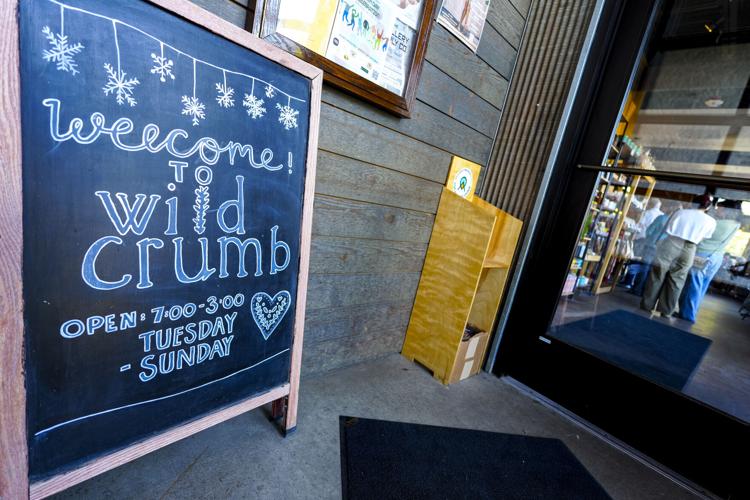 welcome!
TO
wild
crumb
OPEN: 7:00-3:00
TUESDAY
- SUNDAY